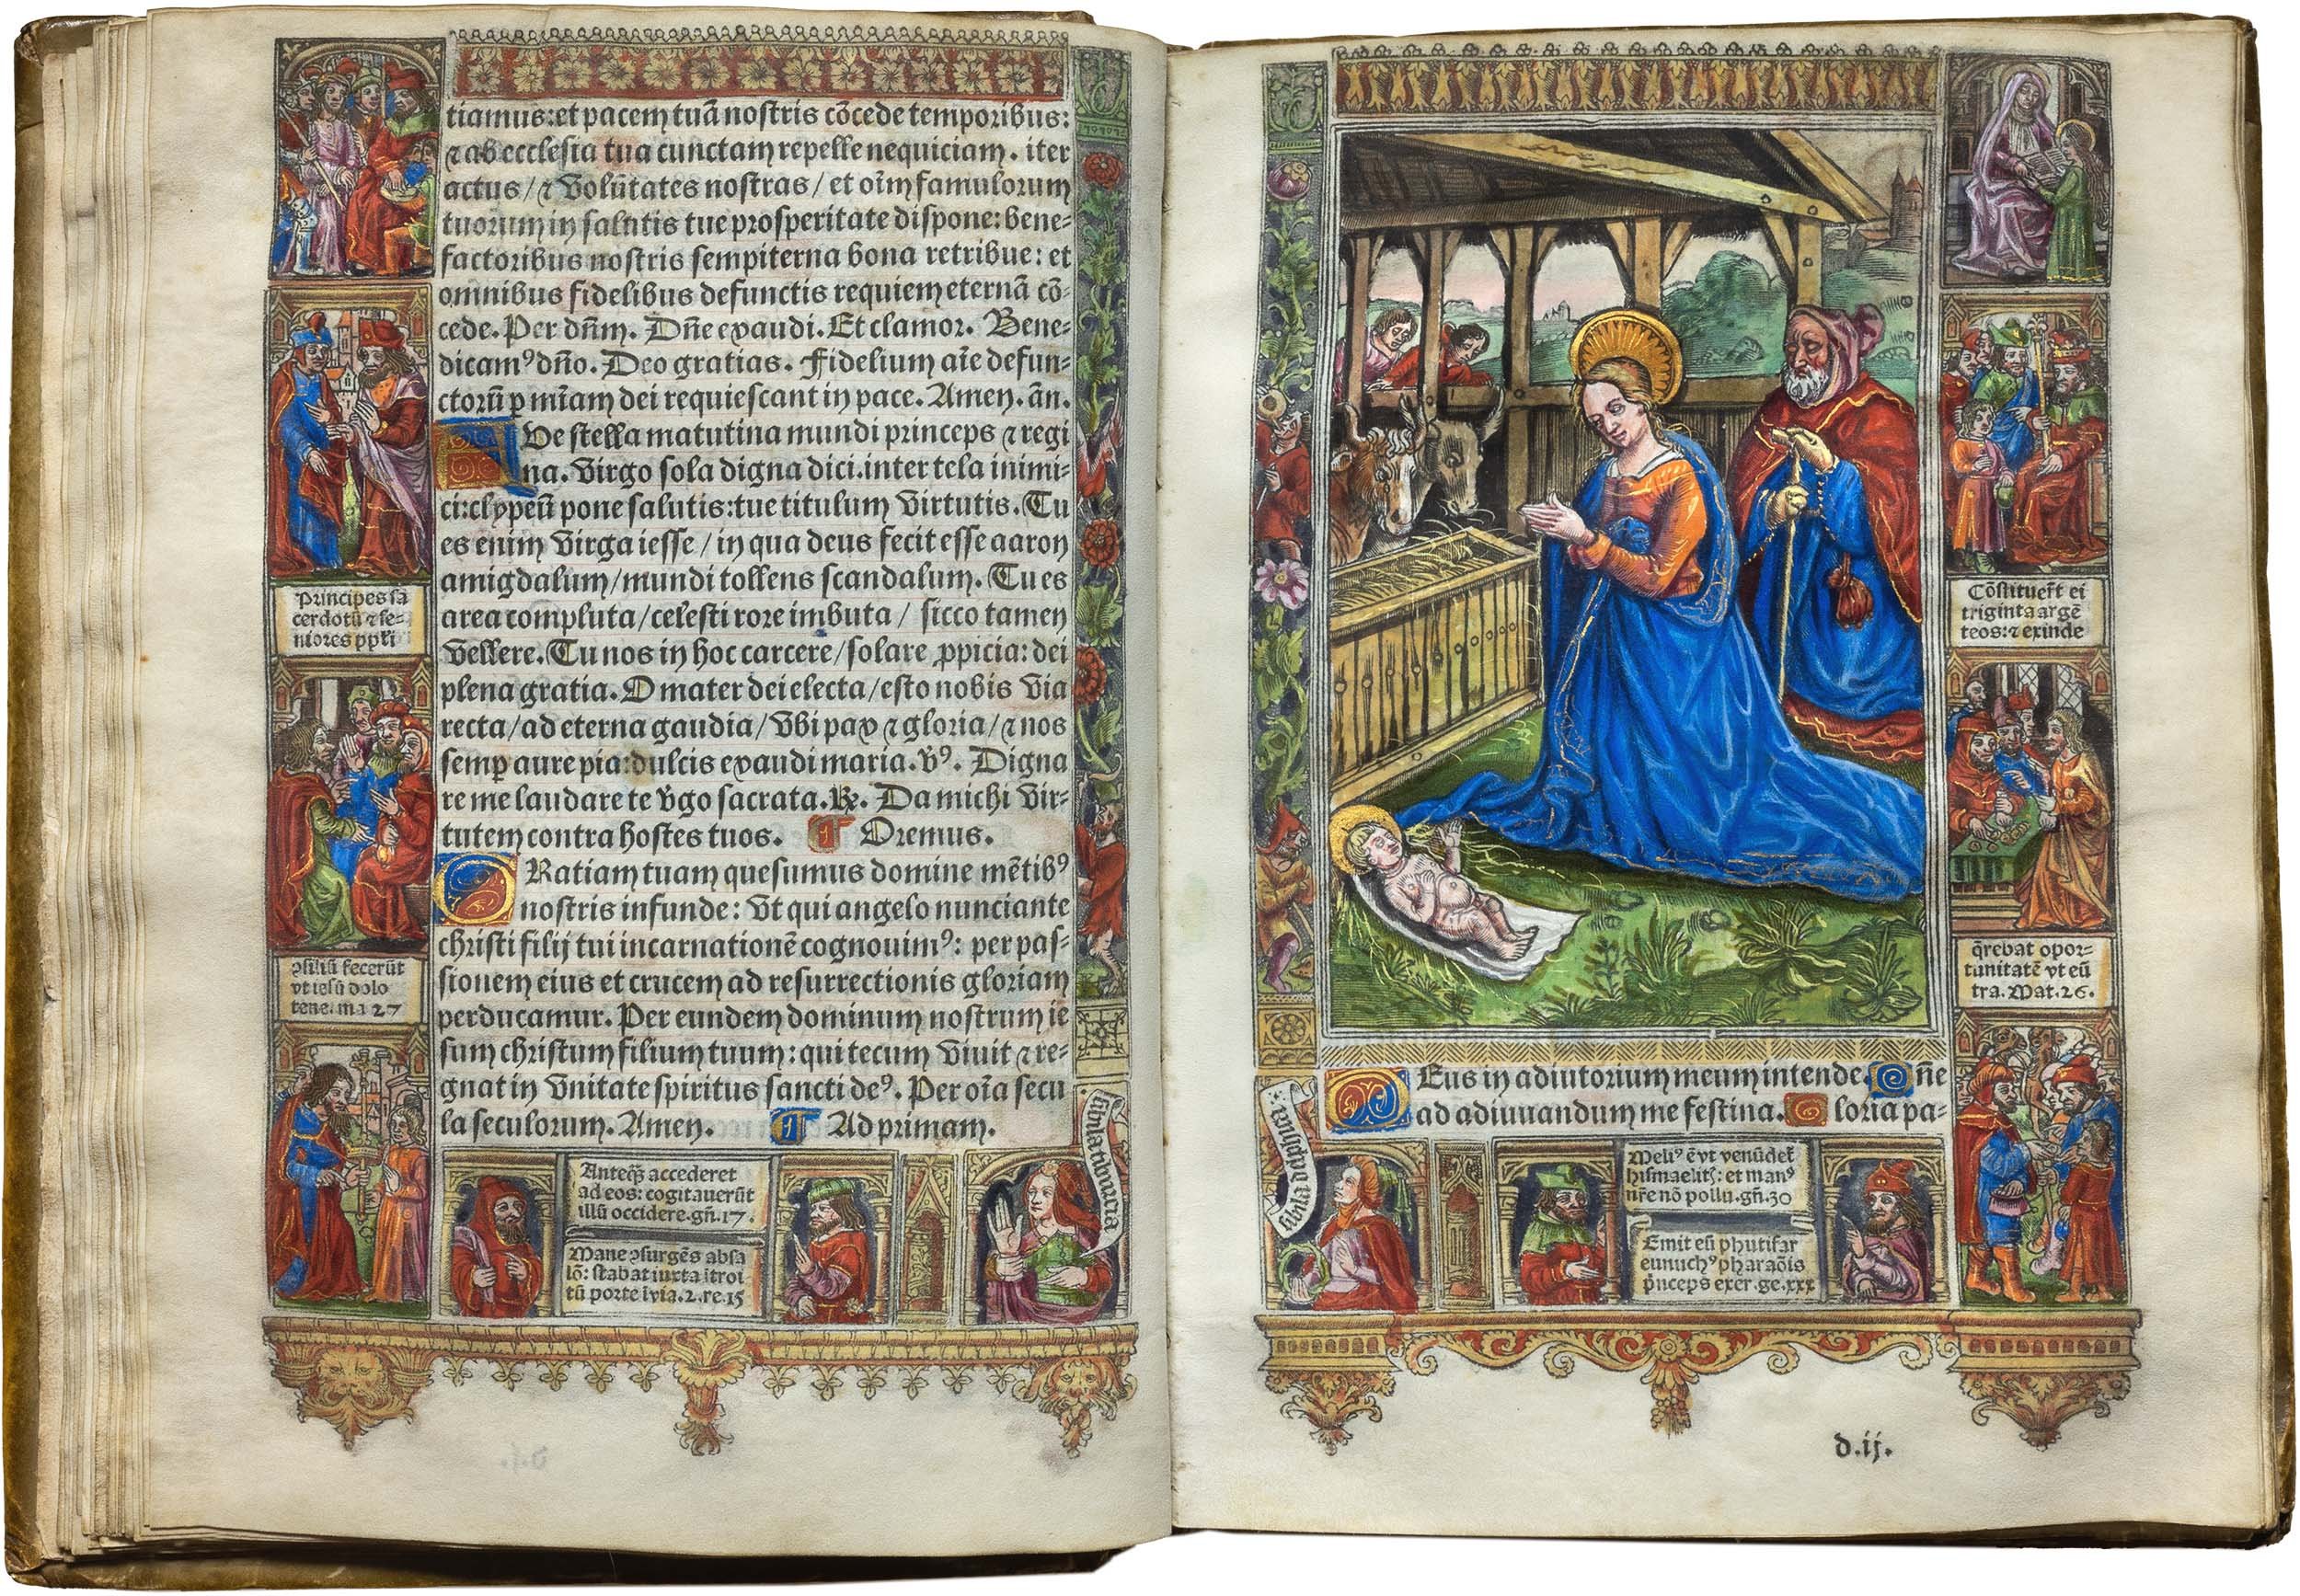 tiamus: et pacem tuã nostris cõcede temporibus:
⁊ ab ecclesia tua cunctam repelle nequiciam. iter
actus / ⁊ volũtates nostras / et oĩm famulorum
tuorum in salutis tue prosperitate dispone: bene-
factoribus nostris sempiterna bona retribue: et
omnibus fidelibus defunctis requiem eternã cõ-
cede. Per dñm. Dñe exaudi. Et clamor. Bene-
dicamꝰ dño. Deo gratias. Fidelium aĩe defun-
ctorũ p mĩam dei requiescant in pace. Amen. añ.
AVe stella matutina mundi princeps ⁊ regi
na. Virgo sola digna dici. inter tela inimi-
ci: clypeũ pone salutis: tue titulum virtutis. Tu
es enim virga iesse / in qua deus fecit esse aaron
amigdalum / mundi tollens scandalum. Tu es
area compluta / celesti rore imbuta / sicco tamen
vellere. Tu nos in hoc carcere / solare ꝓpicia: dei
plena gratia. O mater dei electa / esto nobis via
recta / ad eterna gaudia / vbi pax ⁊ gloria / ⁊ nos
semꝑ aure pia: dulcis exaudi maria. v̉ꝰ. Digna
re me laudare te v̉go sacrata. ℟. Da michi vir-
tutem contra hostes tuos. ¶ Oremus.
GRatiam tuam quesumus domine mẽtibꝰ
nostris infunde: vt qui angelo nunciante
christi filij tui incarnationẽ cognouimꝰ: per pas-
sionem eius et crucem ad resurrectionis gloriam
perducamur. Per eundem dominum nostrum ie
sum christum filium tuum: qui tecum viuit ⁊ re-
gnat in vnitate spiritus sancti deꝰ. Per oĩa secu
la seculorum. Amen. ¶ Ad primam.
Principes sa
cerdotũ ⁊ se-
niores ppłi
ꝯsiliũ fecerũt
vt iesũ dolo
tene. m a 27
Anteq̃ȝ accederet
ad eos: cogitauerũt
illũ occidere. gñ. 17.
Mane ꝯsurgẽs absa
lõ: stabat iuxta ĩtroi
tũ porte ĩ via. 2. re. 15
sibila tiburcia
DEus in adiutorium meum intende. Dñe
ad adiuuandum me festina. Gloria pa-
Cõstituer̃t ei
triginta argẽ
teos: ⁊ exinde
q̃rebat opor-
tunitatẽ vt eũ
tra. Mat. 26.
sibila delphica
Meliꝰ ẽ vt venũdet̃
hismaelitȝ: et manꝰ
nr̃e nõ pollu. gñ. 30
Emit eũ phutifar
eunuchꝰ pharaõis
p̃nceps exer. ge. xxx
d.ij.